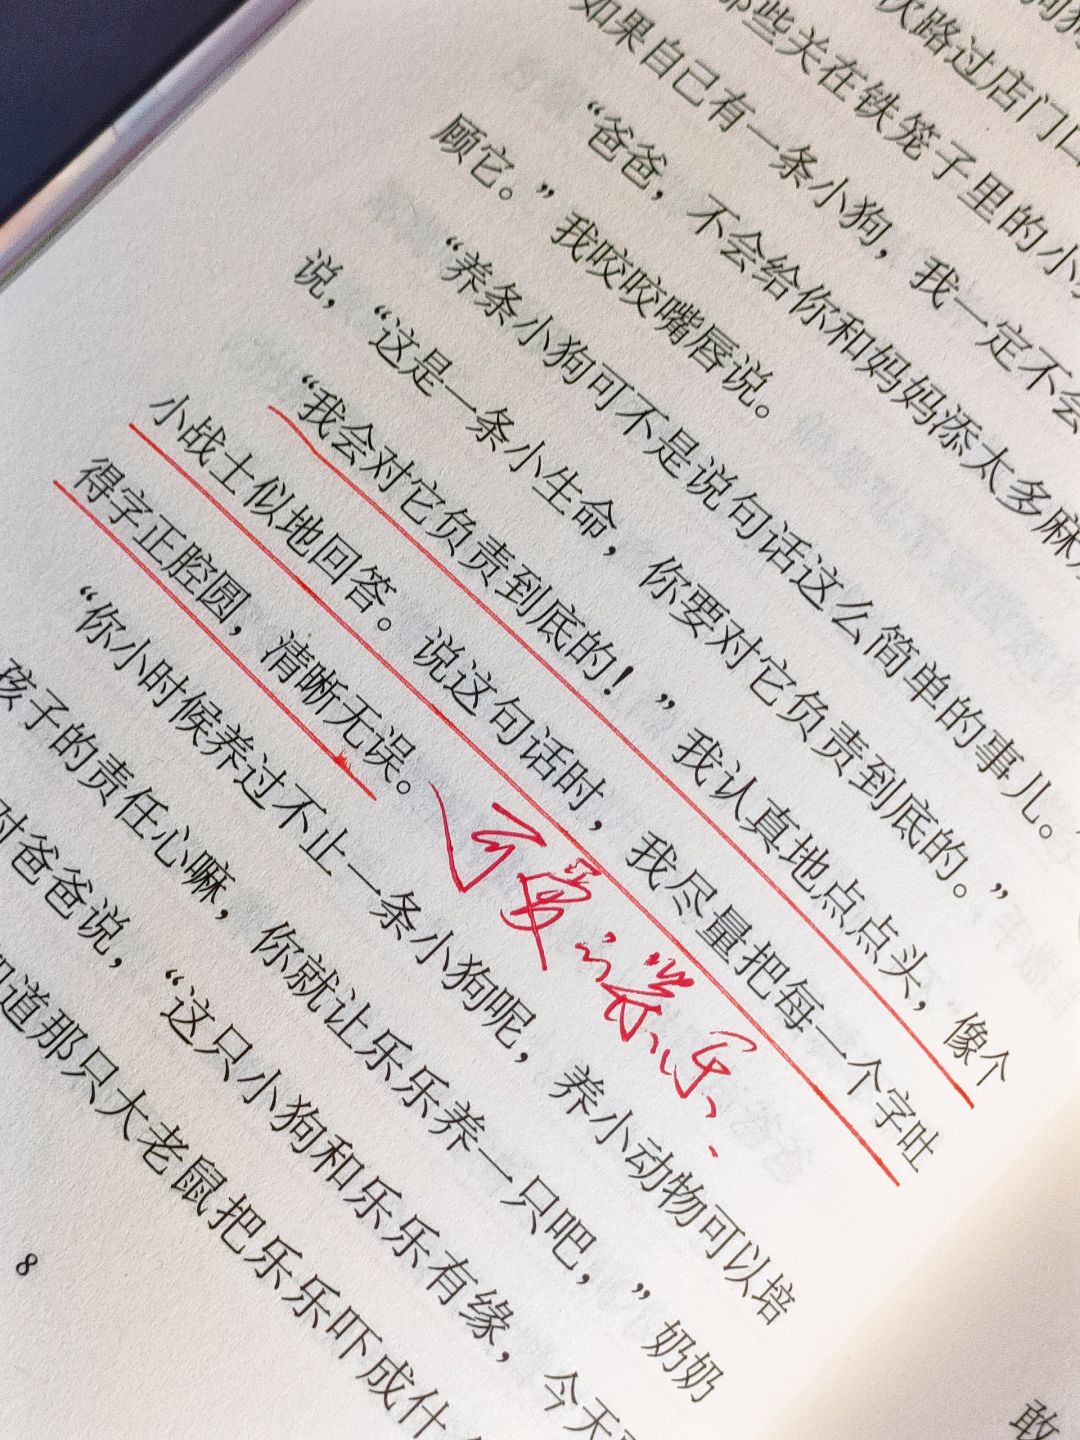 次路过店门口
那些关在铁笼子里的小
如果自己有一条小狗，我一定不会
“爸爸，不会给你和妈妈添太多麻
顾它。”我咬咬嘴唇说。
“养条小狗可不是说句话这么简单的事儿。
说，“这是一条小生命，你要对它负责到底的。”
“我会对它负责到底的！”我认真地点点头，像个
小战士似地回答。说这句话时，我尽量把每一个字吐
得字正腔圆，清晰无误。
可爱
“你小时候养过不止一条小狗呢，养小动物可以培
孩子的责任心嘛，你就让乐乐养一只吧，”奶奶
对爸爸说，“这只小狗和乐乐有缘，今天
知道那只大老鼠把乐乐吓成什
8
敢